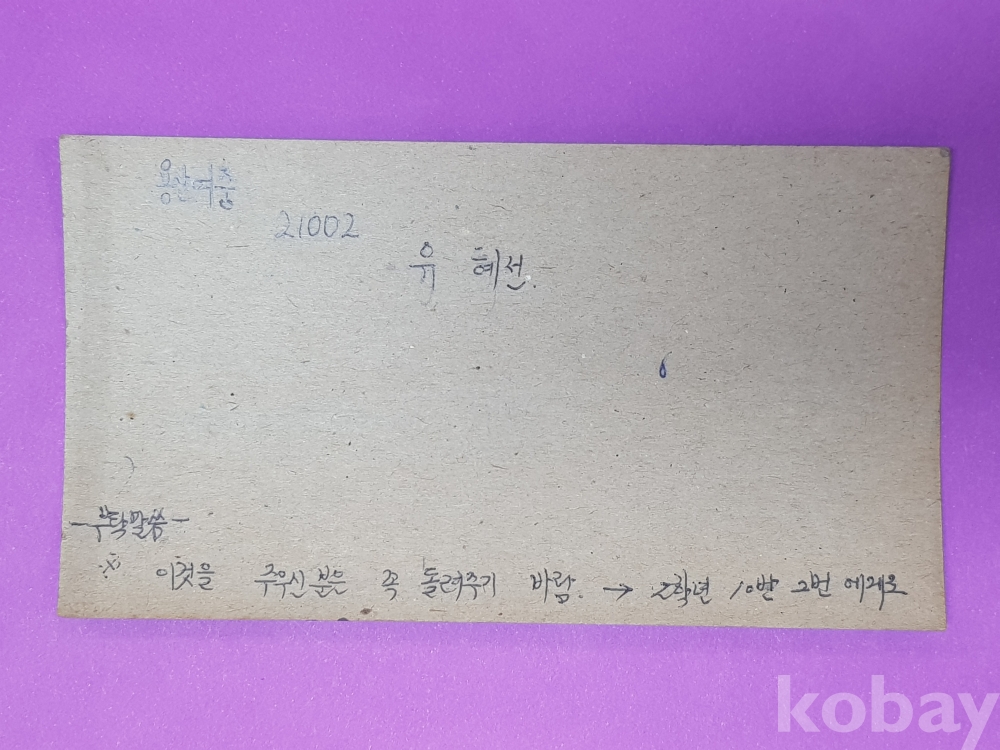 용산여중
21002
유 혜선.
-부탁말씀-
※ 이것을 주우신분은 꼭 돌려주기 바람. → 2학년 10반 2번 에게로
kobay